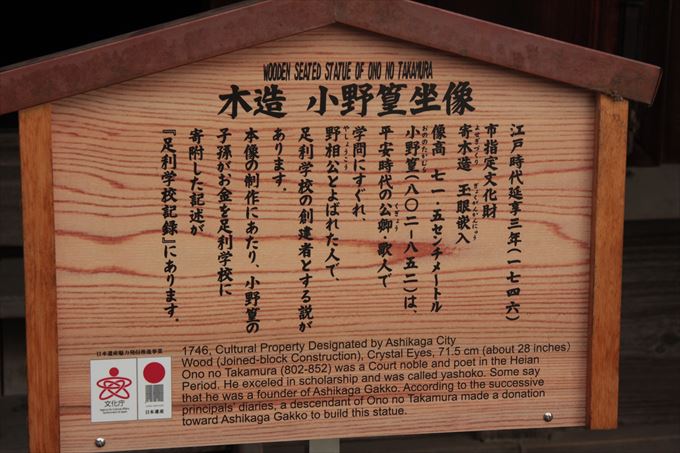 WOODEN SEATED STATUE OF ONO NO TAKAMURA
木造 小野篁坐像
江戸時代延享三年(一七四六)
市指定文化財
寄木造 玉眼嵌入
よせぎづくり ぎょくがんかんにゅう
像高 七一・五センチメートル
小野篁(八〇二―八五二)は、
おののたかむら
平安時代の公卿・歌人で
くぎょう
学問にすぐれ、
野相公とよばれた人で、
やしょうこう
足利学校の創建者とする説が
あります。
本像の制作にあたり、小野篁の
子孫がお金を足利学校に
寄附した記述が
『足利学校記録』にあります。
1746, Cultural Property Designated by Ashikaga City
Wood (Joined-block Construction), Crystal Eyes, 71.5 cm (about 28 inches)
Ono no Takamura (802-852) was a Court noble and poet in the Heian
Period. He exceled in scholarship and was called yashoko. Some say
that he was a founder of Ashikaga Gakko. According to the successive
principals' diaries, a descendant of Ono no Takamura made a donation
toward Ashikaga Gakko to build this statue.
日本遺産魅力発信推進事業
文化庁
日本遺産